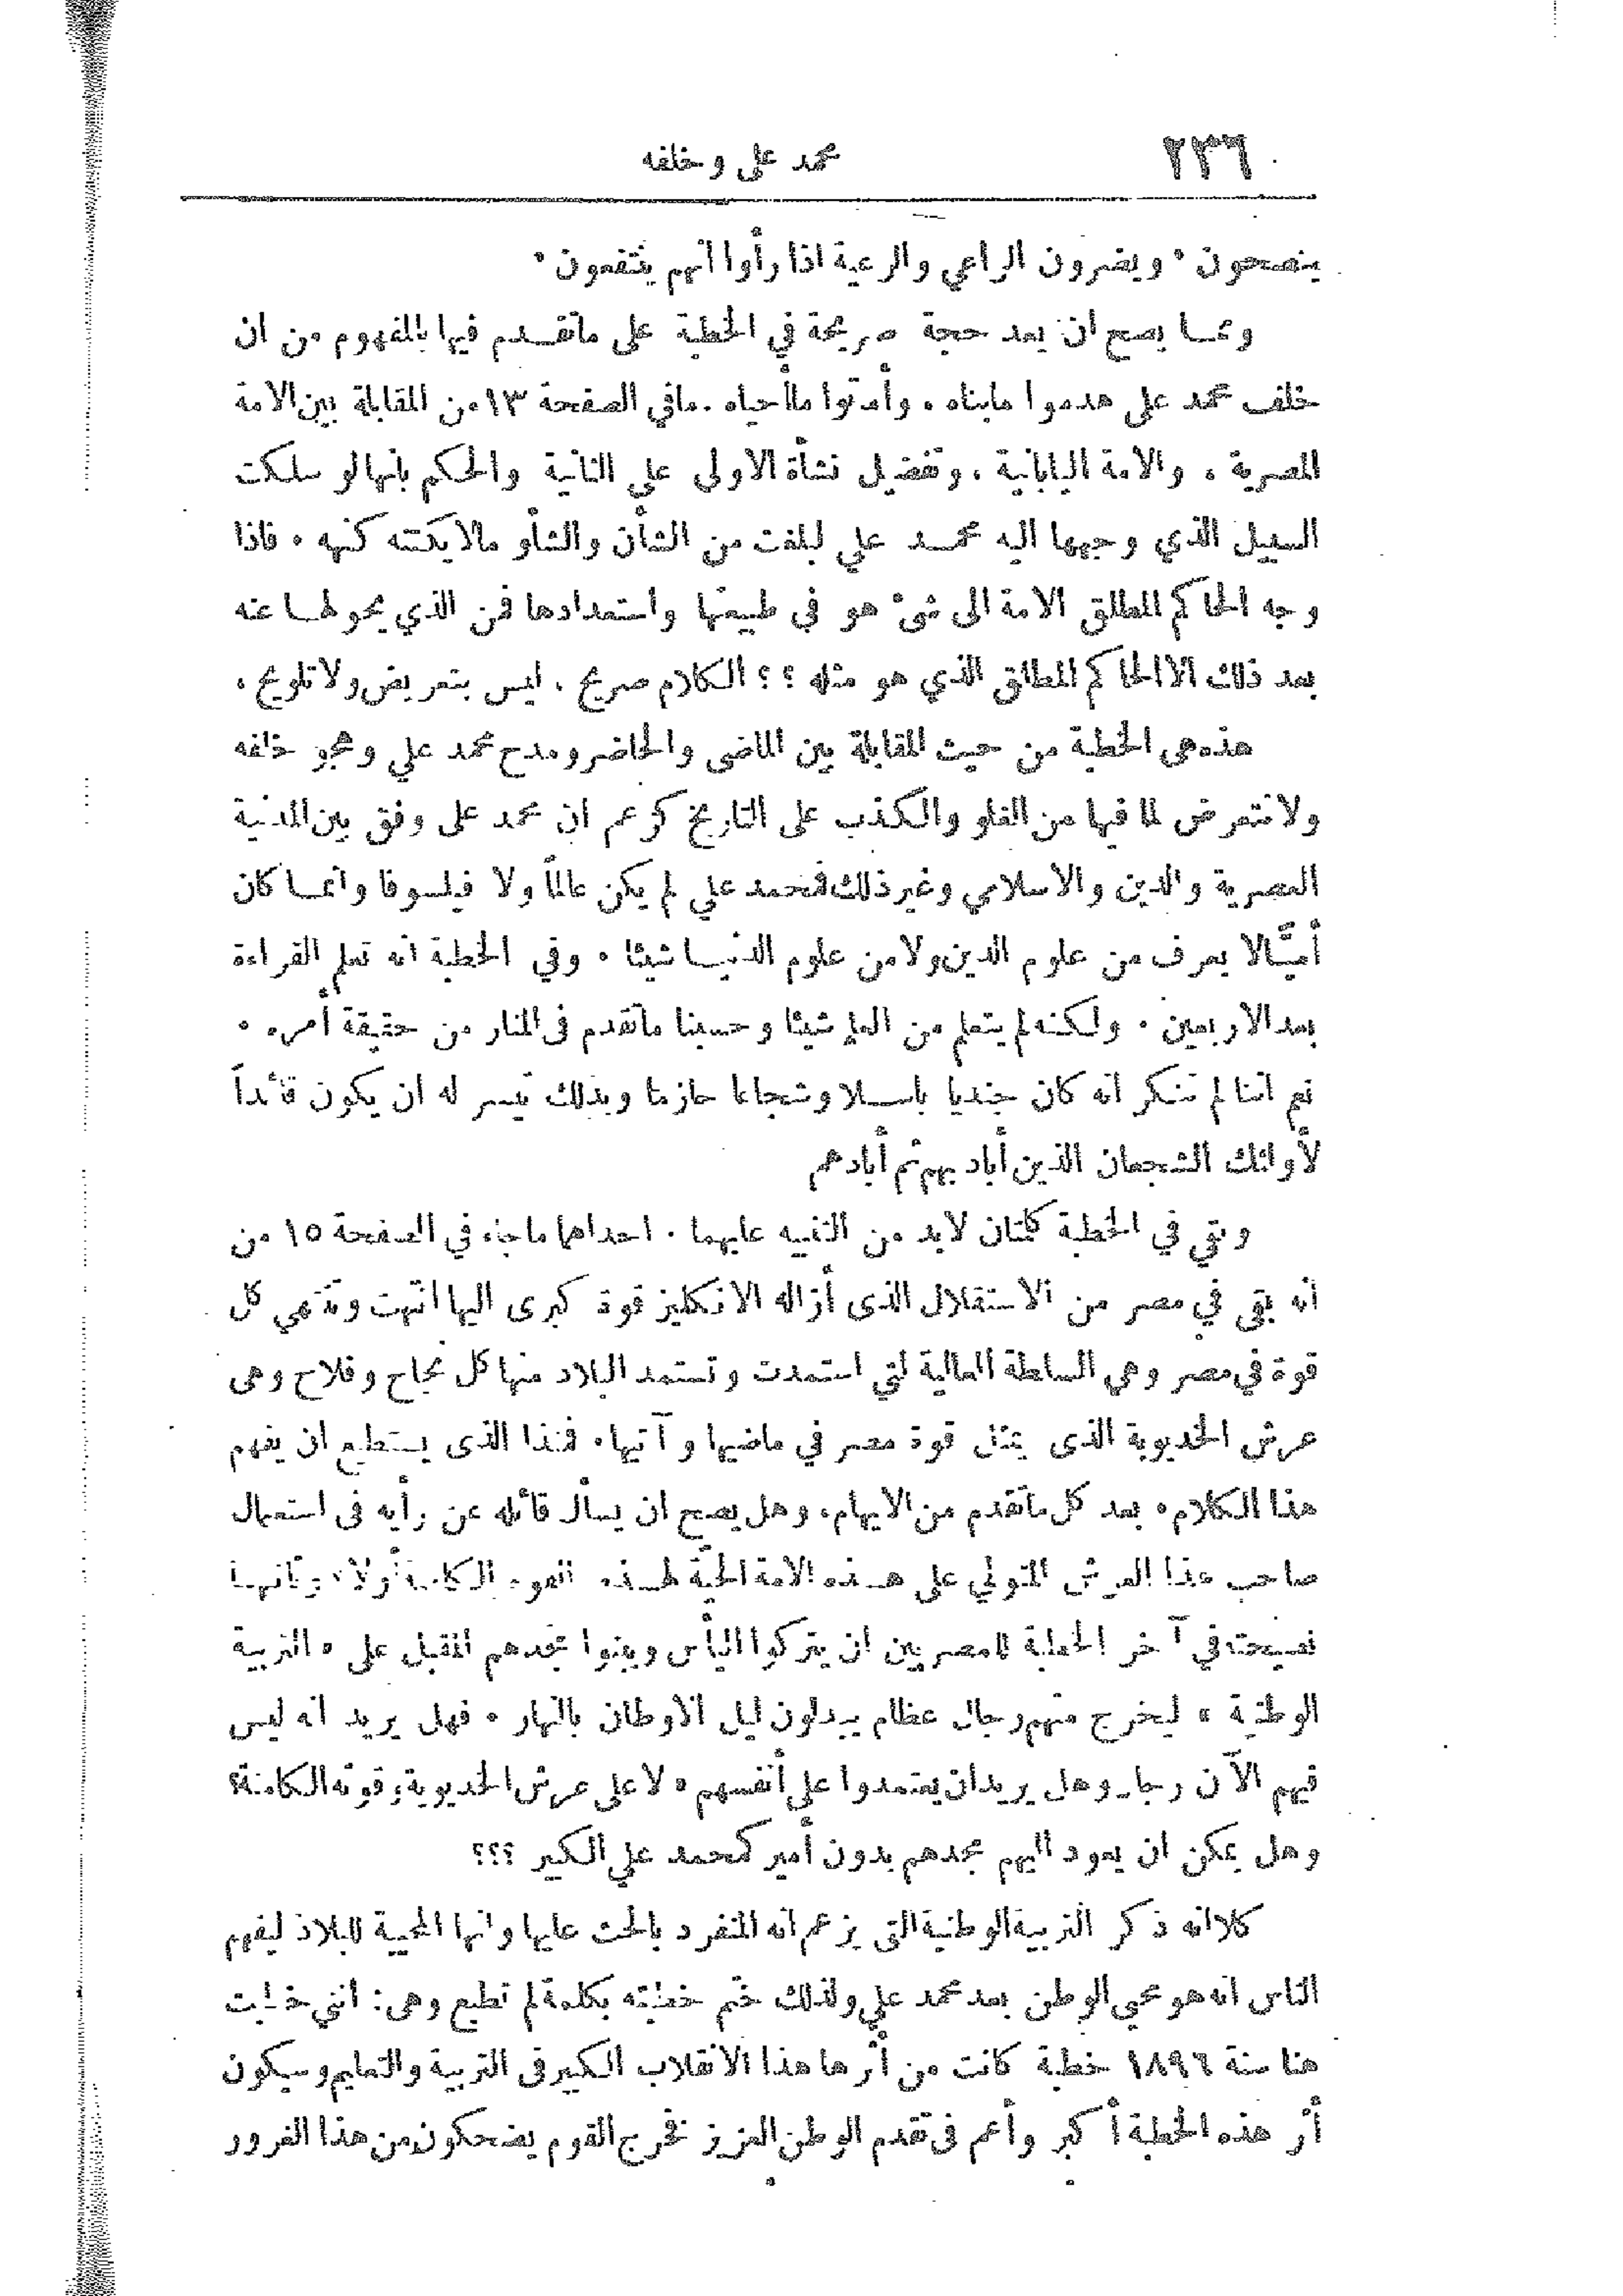 ٢٣٦
محمد علي وخلفه
ينصحون . ويضرون الراعي والرعية اذا رأوا انهم ينتفعون .
ومما يصح ان يعد حجة صريحة في الخطبة على ماتقدم فيها بالمفهوم من ان
خلف محمد علي هدموا مابناه . وأماتوا ماأحياه . مافي الصفحة ١٣ من المقابلة بين الامة
المصرية . والامة اليابانية . وتفضيل نشأة الاولى على الثانية والحكم بأنها لو سلكت
السبيل الذي وجهها اليه محمد علي لبلغت من الشأن والشأو مالا يكتنه كنهه . فاذا
وجه الحاكم المطلق الامة الى شيء هو في طبيعتها واستعدادها فمن الذي يحولها عنه
بعد ذلك الا الحاكم المطلق الذي هو مثله ؟؟ الكلام صريح . ليس بتعريض ولا تلويح .
هذه هي الخطبة من حيث المقابلة بين الماضى والحاضر ومدح محمد علي وهجو خلفه
ولا نتعرض لما فيها من الغلو والكذب على التاريخ كزعم ان محمد على وفق بين المدنية
العصرية والدين والاسلامي وغير ذلك فمحمد علي لم يكن عالماً ولا فيلسوفا وانما كان
أميًّا لا يعرف من علوم الدين ولا من علوم الدنيا شيئا . وفي الخطبة انه تعلم القراءة
بعد الاربعين . ولكنه لم يتعلم من العلم شيئا وحسبنا ماتقدم في المنار من حقيقة أمره .
نعم اننا لم ننكر انه كان جنديا باسلا وشجاعا حازما وبذلك تيسر له ان يكون قائداً
لأولئك الشجعان الذين أباد بهم ثم أبادهم
وبقي في الخطبة كلمتان لابد من التنبيه عليهما . احداهما ماجاء في الصفحة ١٥ من
انه بقي في مصر من الاستقلال الذى أزاله الانكليز قوة كبرى اليها انتهت وتنتهي كل
قوة في مصر وهي السلطة العالية لتي استمدت وتستمد البلاد منها كل نجاح وفلاح وهى
عرش الخديوية الذى يمثل قوة مصر في ماضيها وآتيها . فمنذا الذى يستطيع ان يفهم
هذا الكلام . بعد كل ماتقدم من الايهام . وهل يصح ان يسأل قائله عن رأيه فى استعمال
صاحب هذا العرش المتولي على هذه الامة الحيّة لهذه القوة الكامنة أولا ، وثانيهما
نصيحته في آخر الخطبة للمصريين ان يتركوا اليأس ويبنوا مجدهم المقبل على « التربية
الوطنية » ليخرج منهم رجال عظام يبدلون ليل الاوطان بالنهار . فهل يريد انه ليس
فيهم الآن رجال وهل يريد ان يعتمدوا على أنفسهم . لا على عرش الخديوية وقوته الكامنة؟
وهل يمكن ان يعود اليهم مجدهم بدون أمير كمحمد علي الكبير ؟؟؟
كلا انه ذكر التربية الوطنية التى يزعم انه المنفرد بالحث عليها وانها المحيية للبلاد ليفهم
الناس انه هو محيي الوطن بعد محمد علي ولذلك ختم خطبته بكلمة لم تطبع وهى : انني خطبت
هنا سنة ١٨٩٦ خطبة كانت من أثرها هذا الانقلاب الكبير فى التربية والتعليم وسيكون
أثر هذه الخطبة أكبر وأعم فى تقدم الوطن العزيز فخرج القوم يضحكون من هذا الغرور